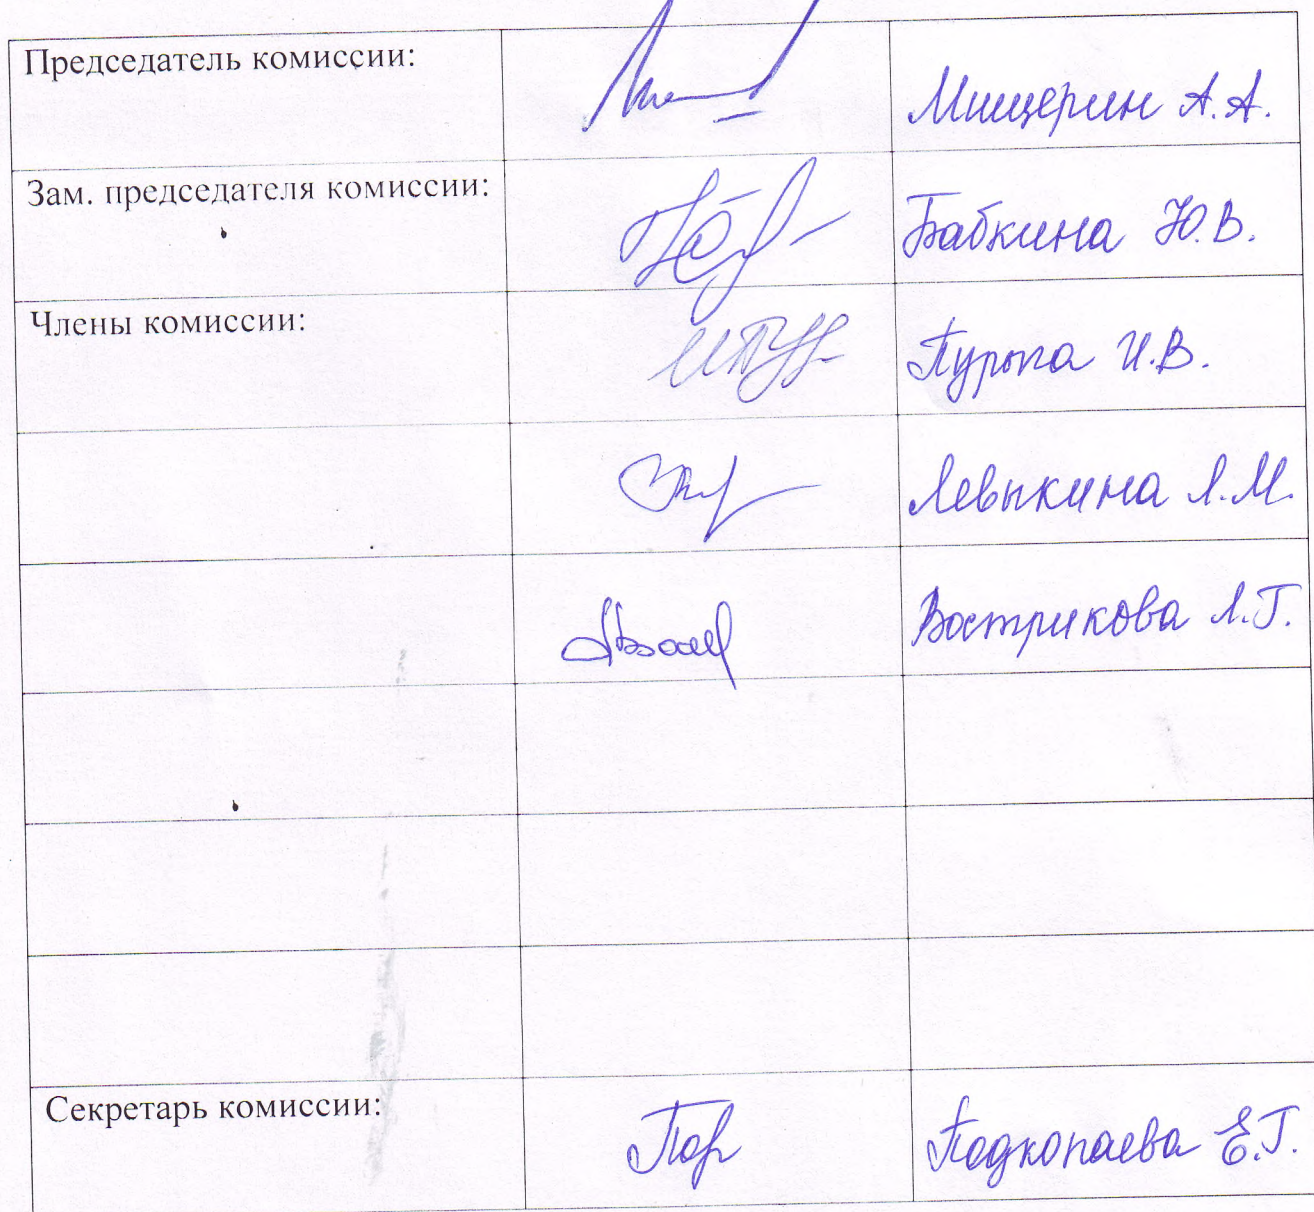 Председатель комиссии:
Мищерин А.А.
Зам. председателя комиссии:
Бабкина Ю.В.
Члены комиссии:
И.В.
Левыкина Л.М.
Вострикова Л.Г.
Секретарь комиссии:
Подкопаева Е.Г.